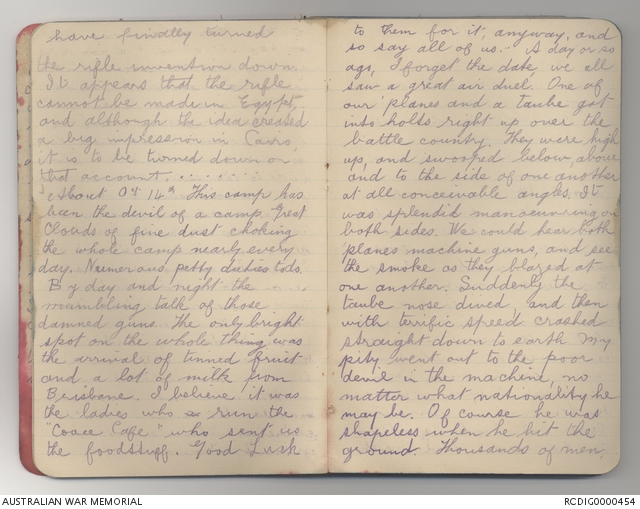 have finally turned
the rifle invention down.
It appears that the rifle
cannot be made in Egypt,
and although the idea created
a big impression in Cairo,
it is to be turned down on
that account. . . . . .
About Oct 14th This camp has
been the devil of a camp. Great
Clouds of fine dust choking
the whole camp nearly every
day. Numerous petty duties too.
By day and night the
mumbling talk of those
damned guns. The only bright
spot on the whole thing was
the arrival of tinned fruit
and a lot of milk from
Brisbane. I believe it was
the ladies who run the
"Cooee Cafe" who sent us
the foodstuff. Good Luck
to them for it, anyway, and
so say all of us. - A day or so
ago, I forget the date, we all
saw a great air duel. One of
our planes and a taube got
into holds right up over the
battle country. They were high
up, and swooped below, above
and to the side of one another
at all conceivable angles. It
was splendid manoeuvring on
both sides. We could hear both
planes machine guns, and see
the smoke as they blazed at
one another. Suddenly the
taube nose dived, and then
with terrific speed crashed
straight down to earth My
pity went out to the poor
devil in the machine, no
matter what nationality he
may be. Of course he was
shapeless when he hit the
ground. Thousands of men,
AUSTRALIAN WAR MEMORIAL
RCDIG0000454